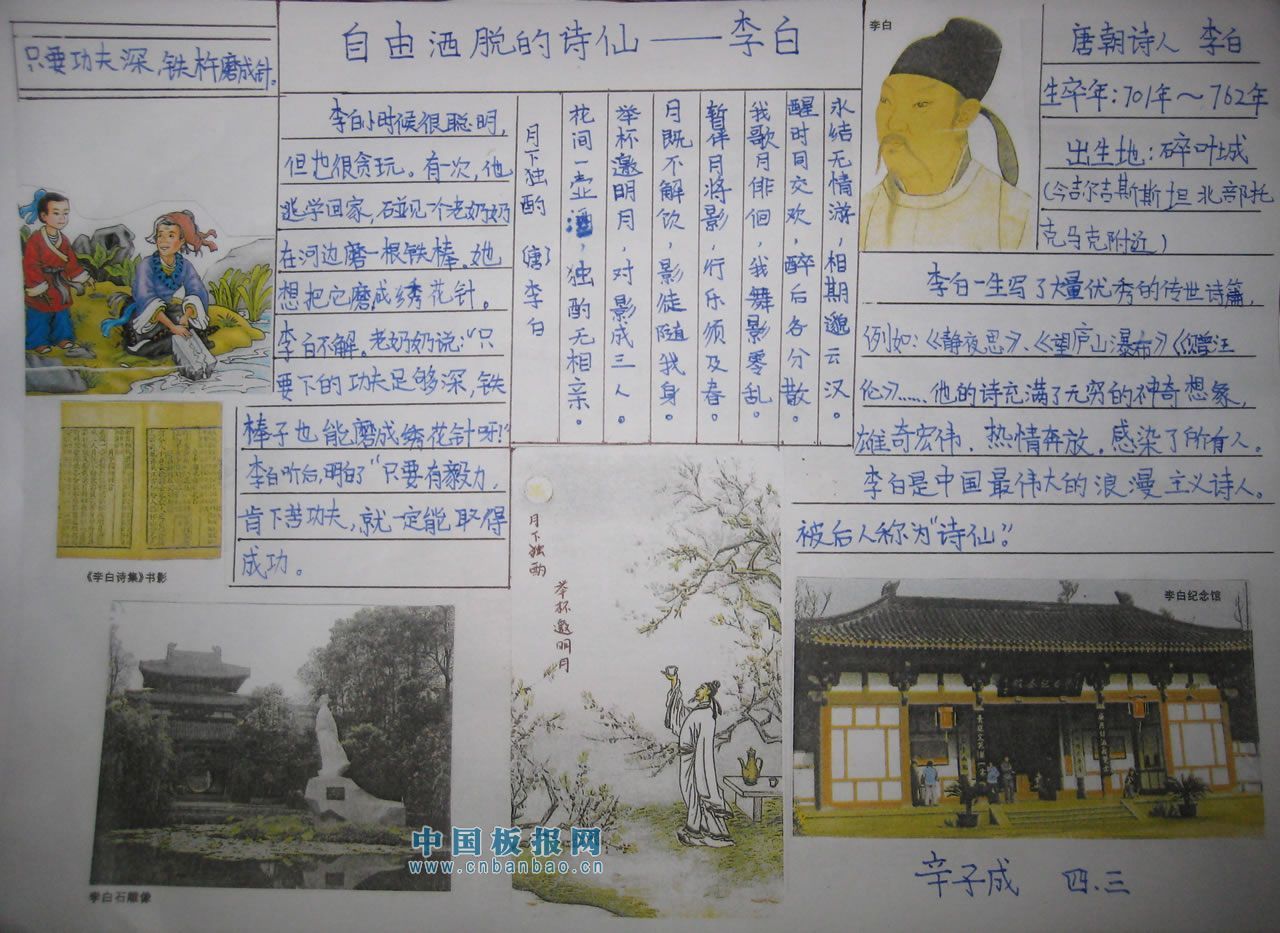 自由洒脱的诗仙——李白
只要功夫深,铁杵磨成针。
李白小时候很聪明,
但也很贪玩。有一次,他
逃学回家,碰见一个老奶奶
在河边磨一根铁棒。她
想把它磨成绣花针。
李白不解。老奶奶说:“只
要下的功夫足够深,铁
棒子也能磨成绣花针呀!”
李白听后,明白了“只要有毅力,
肯下苦功夫,就一定能取得
成功。
月下独酌 (唐) 李白
花间一壶酒,独酌无相亲。
举杯邀明月,对影成三人。
月既不解饮,影徒随我身。
暂伴月将影,行乐须及春。
我歌月徘徊,我舞影零乱。
醒时同交欢,醉后各分散。
永结无情游,相期邈云汉。
李白
唐朝诗人 李白
生卒年:701年~762年
出生地:碎叶城
(今吉尔吉斯斯坦北部托
克马克附近)
李白一生写了大量优秀的传世诗篇,
例如:《静夜思》、《望庐山瀑布》《赠汪
伦》……他的诗充满了无穷的神奇想象,
雄奇宏伟,热情奔放,感染了所有人。
李白是中国最伟大的浪漫主义诗人。
被后人称为“诗仙”。
《李白诗集》书影
月下独酌
举杯邀明月
李白纪念馆
李白石雕像
中国板报网
www.cnbanbao.cn
辛子成 四.三